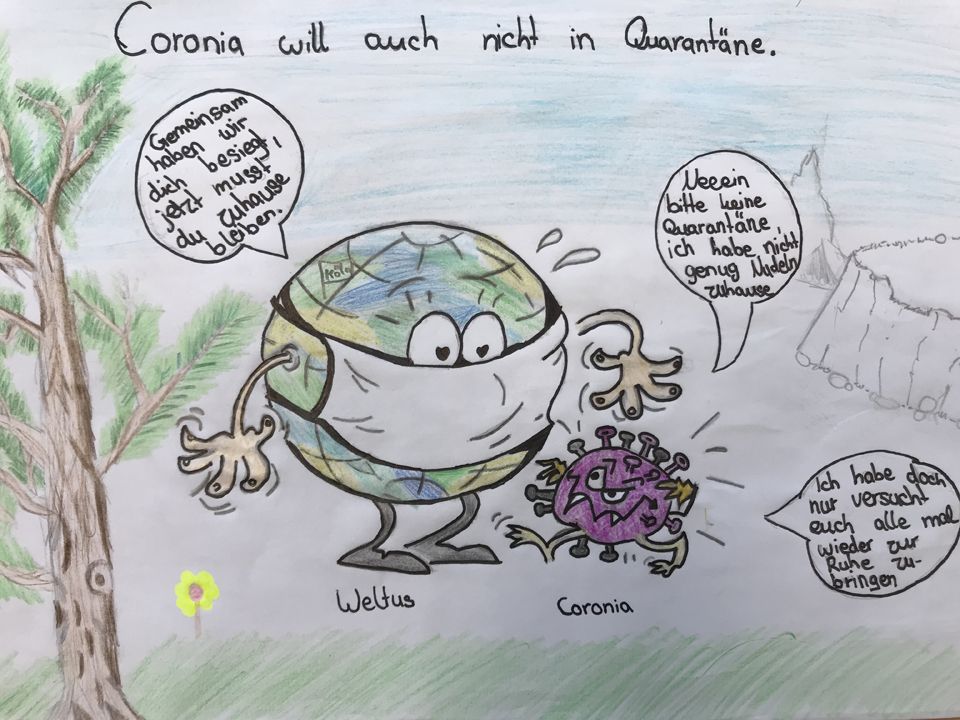 Coronia will auch nicht in Quarantäne.
Gemeinsam
haben wir
dich besiegt,
jetzt musst
du zuhause
bleiben.
Neeein
bitte keine
Quarantäne,
ich habe nicht
genug Nudeln
zuhause
Köln
Ich habe doch
nur versucht
euch alle mal
wieder zur
Ruhe zu-
bringen
Weltus
Coronia